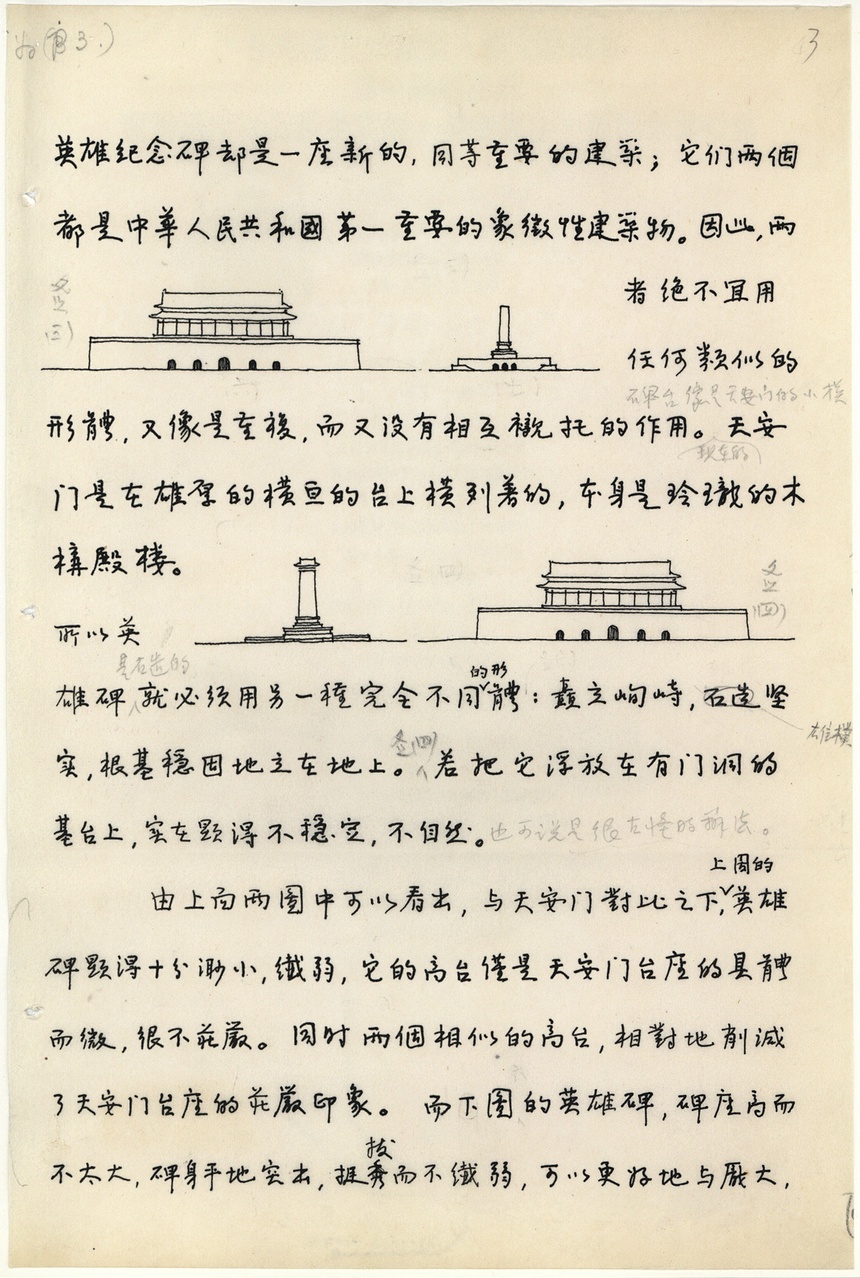 3
英雄紀念碑却是一座新的，同等重要的建築；它们两個
都是中華人民共和國第一重要的象徵性建築物。因此，两
者绝不宜用
任何類似的
碑台像是天安门的小模
形體，又像是重複，而又没有相互襯托的作用。天安
门是在雄厚的横亘的台上横列著的，本身是玲瓏的木
構殿楼。
所以英
是石造的
的形
雄碑就必须用另一種完全不同體：矗立峋峙，石造坚
雄模
实，根基穩固地立在地上。若把它浮放在有门洞的
基台上，实在顕得不穩定，不自然。也可说是很古怪的辦法。
上图的
由上面两圖中可以看出，与天安门對比之下，英雄
碑顕得十分渺小，纖弱，它的高台僅是天安门台座的具體
而微，很不莊嚴。同时两個相似的高台，相對地削減
了天安门台座的莊嚴印象。而下圖的英雄碑，碑座高而
拔
不太大，碑身平地突出，挺秀而不纖弱，可以更好地与厖大，